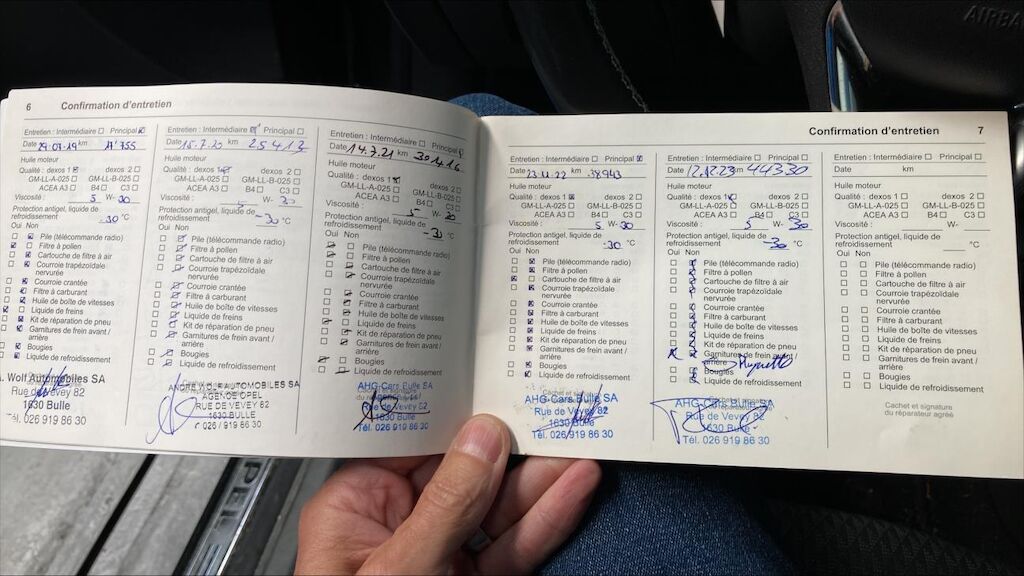 6 Confirmation d'entretien
Entretien : Intermédiaire Principal
Date 29.07.19 km
Huile moteur
Qualité : dexos 1 dexos 2
GM-LL-A-025 GM-LL-B-025
ACEA A3 B4 C3
Viscosité : 5 W- 30
Protection antigel, liquide de
refroidissement -30 °C
Oui Non
Pile (télécommande radio)
Filtre à pollen
Cartouche de filtre à air
Courroie trapézoïdale
nervurée
Courroie crantée
Filtre à carburant
Huile de boîte de vitesses
Liquide de freins
Kit de réparation de pneu
Garnitures de frein avant /
arrière
Bougies
Liquide de refroidissement
Wolf Automobiles SA
Rue de Vevey 82
1630 Bulle
Tél. 026 919 86 30
Entretien : Intermédiaire Principal
Date 15.7.20 km 25413
Huile moteur
Qualité : dexos 1 dexos 2
GM-LL-A-025 GM-LL-B-025
ACEA A3 B4 C3
Viscosité : 5 W- 30
Protection antigel, liquide de
refroidissement -30 °C
Oui Non
Pile (télécommande radio)
Filtre à pollen
Cartouche de filtre à air
Courroie trapézoïdale
nervurée
Courroie crantée
Filtre à carburant
Huile de boîte de vitesses
Liquide de freins
Kit de réparation de pneu
Garnitures de frein avant /
arrière
Bougies
Liquide de refroidissement
ANDRE WOLF AUTOMOBILES SA
AGENCE OPEL
RUE DE VEVEY 82
1630 BULLE
026 / 919 86 30
Entretien : Intermédiaire Principal
Date 14.7.21 km 30416
Huile moteur
Qualité : dexos 1 dexos 2
GM-LL-A-025 GM-LL-B-025
ACEA A3 B4 C3
Viscosité : 5 W- 30
Protection antigel, liquide de
refroidissement -30 °C
Oui Non
Pile (télécommande radio)
Filtre à pollen
Cartouche de filtre à air
Courroie trapézoïdale
nervurée
Courroie crantée
Filtre à carburant
Huile de boîte de vitesses
Liquide de freins
Kit de réparation de pneu
Garnitures de frein avant /
arrière
Bougies
Liquide de refroidissement
AHG-Cars Bulle SA
Rue de Vevey 82
1630 Bulle
Tél. 026 919 86 30
Confirmation d'entretien 7
Entretien : Intermédiaire Principal
Date 23.11.22 km 38943
Huile moteur
Qualité : dexos 1 dexos 2
GM-LL-A-025 GM-LL-B-025
ACEA A3 B4 C3
Viscosité : 5 W- 30
Protection antigel, liquide de
refroidissement -30 °C
Oui Non
Pile (télécommande radio)
Filtre à pollen
Cartouche de filtre à air
Courroie trapézoïdale
nervurée
Courroie crantée
Filtre à carburant
Huile de boîte de vitesses
Liquide de freins
Kit de réparation de pneu
Garnitures de frein avant /
arrière
Bougies
Liquide de refroidissement
Cachet et signature
AHG-Cars Bulle SA
Rue de Vevey 82
1630 Bulle
Tél. 026 919 86 30
Entretien : Intermédiaire Principal
Date 12.12.23 km 44330
Huile moteur
Qualité : dexos 1 dexos 2
GM-LL-A-025 GM-LL-B-025
ACEA A3 B4 C3
Viscosité : 5 W- 30
Protection antigel, liquide de
refroidissement -30 °C
Oui Non
Pile (télécommande radio)
Filtre à pollen
Cartouche de filtre à air
Courroie trapézoïdale
nervurée
Courroie crantée
Filtre à carburant
Huile de boîte de vitesses
Liquide de freins
Kit de réparation de pneu
Garnitures de frein avant /
arrière
Bougies
Liquide de refroidissement
AHG-Cars Bulle SA
Rue de Vevey 82
1630 Bulle
Tél. 026 919 86 30
Entretien : Intermédiaire Principal
Date km
Huile moteur
Qualité : dexos 1 dexos 2
GM-LL-A-025 GM-LL-B-025
ACEA A3 B4 C3
Viscosité : W-
Protection antigel, liquide de
refroidissement °C
Oui Non
Pile (télécommande radio)
Filtre à pollen
Cartouche de filtre à air
Courroie trapézoïdale
nervurée
Courroie crantée
Filtre à carburant
Huile de boîte de vitesses
Liquide de freins
Kit de réparation de pneu
Garnitures de frein avant /
arrière
Bougies
Liquide de refroidissement
Cachet et signature
du réparateur agréé